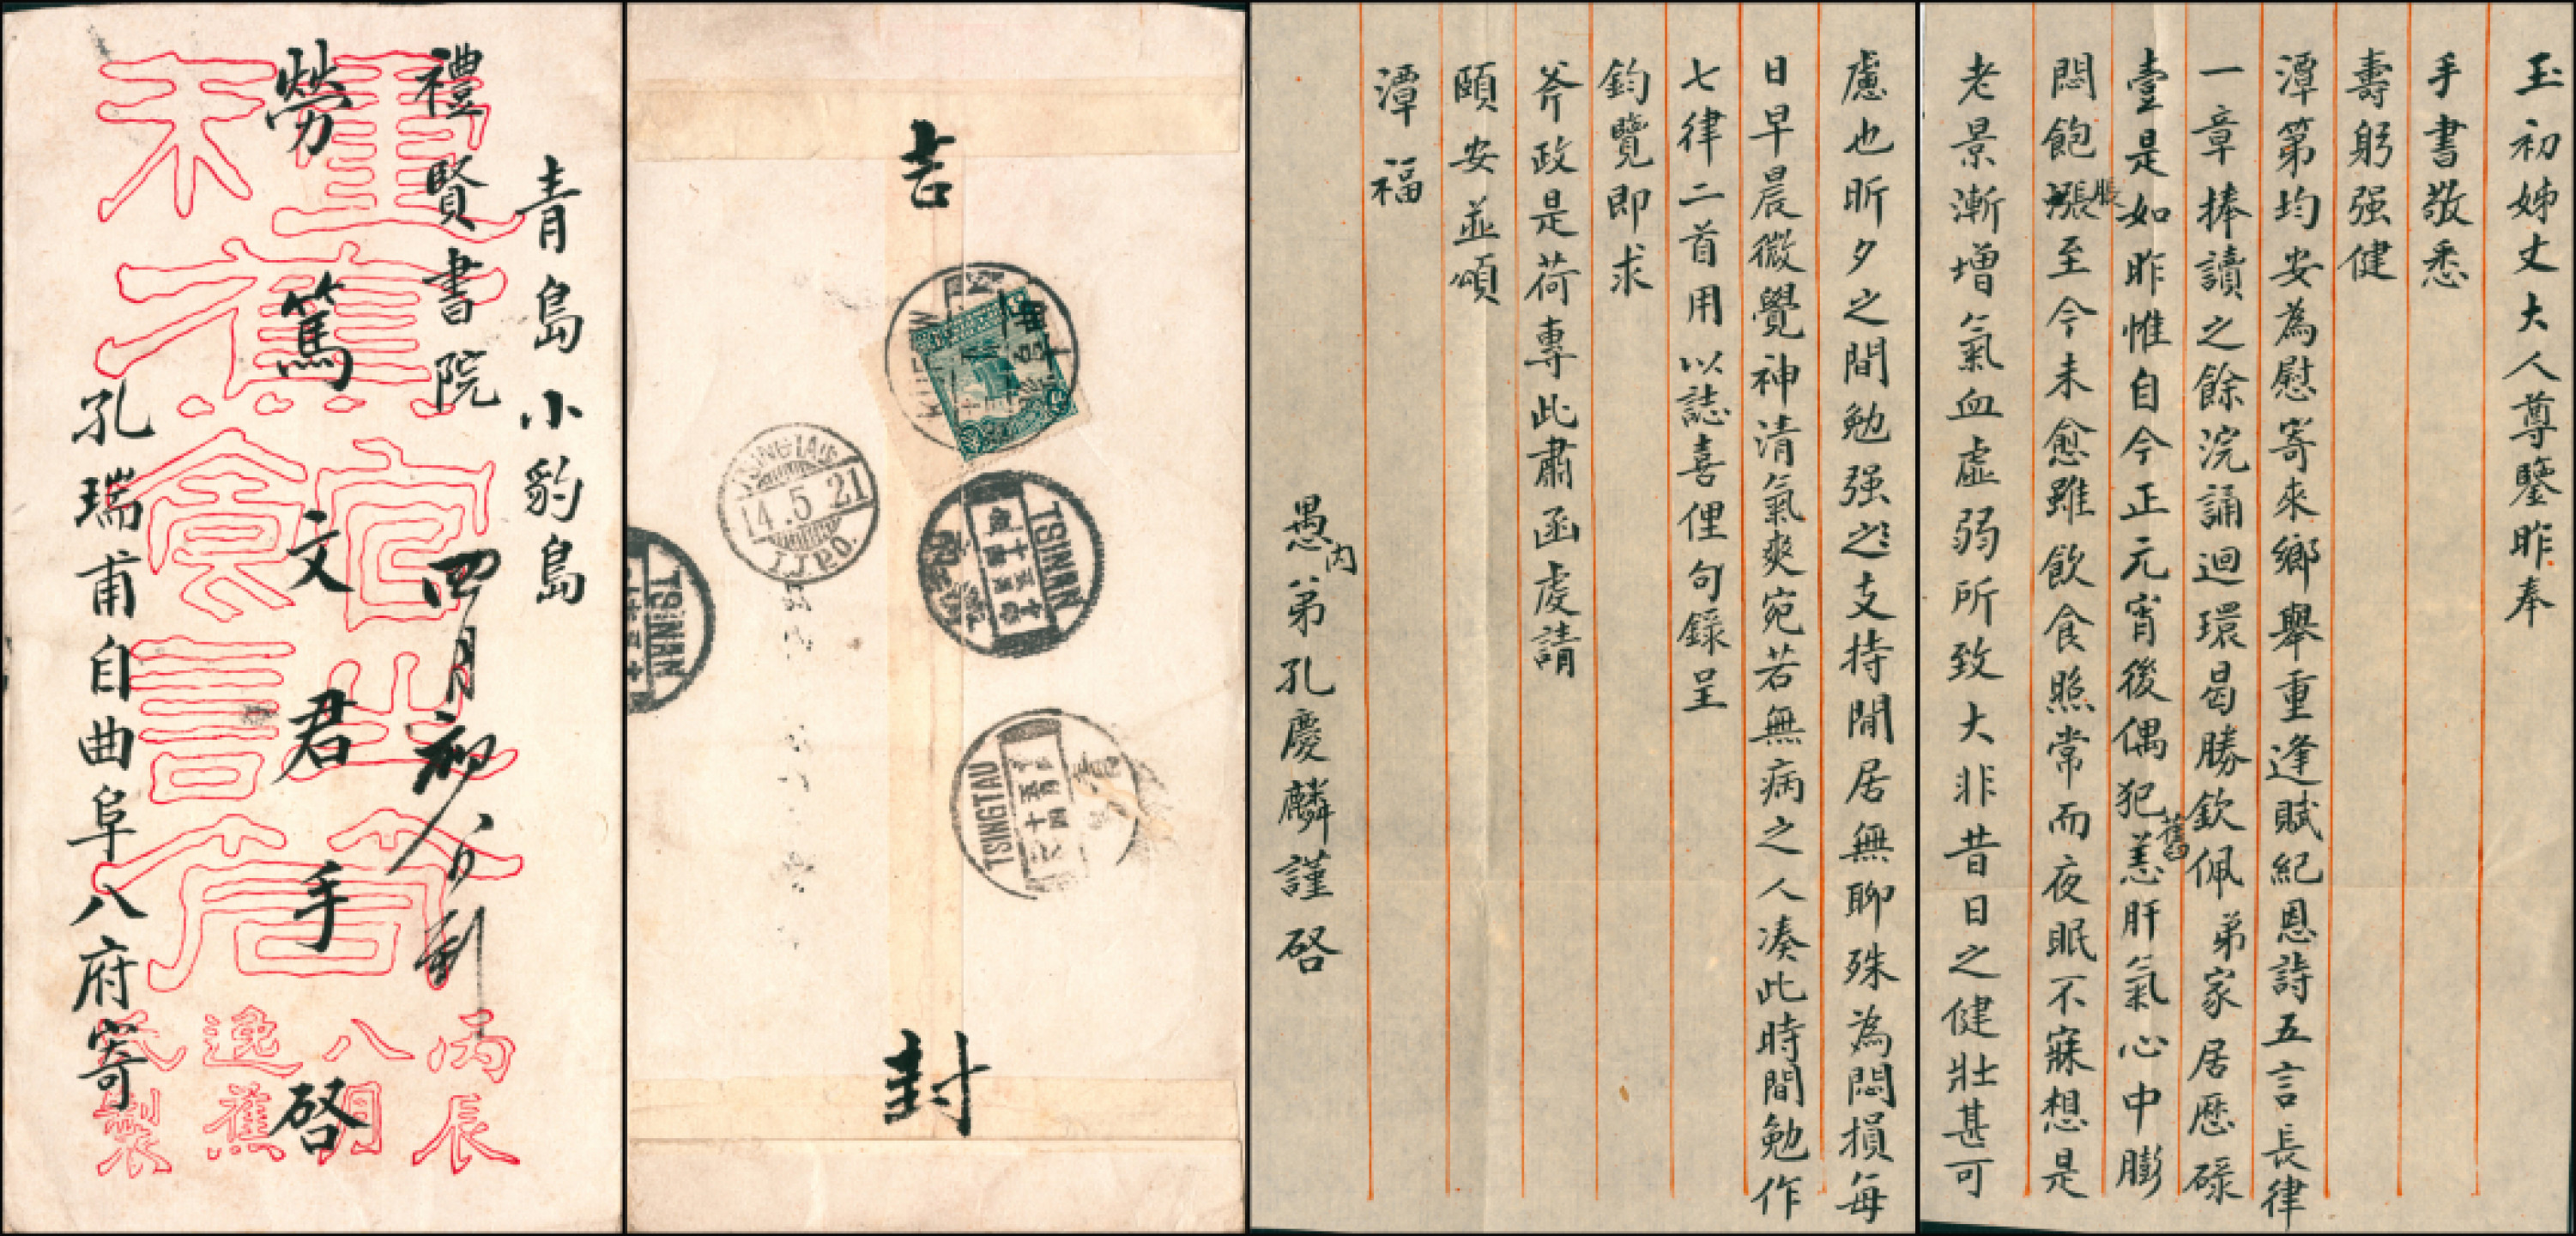 青島小豹島
禮賢書院
四月初八日到
勞篤文君手啓
孔瑞甫自曲阜八府寄
重蕉
官
禽言
丙辰
八月
逸蕉
製
吉
封
TSINGTAU
14.5.21
I.J.P.O.
TSINAN
TSINAN
TSINGTAU
玉初姊丈大人尊鑒昨奉
手書敬悉
壽躬强健
潭第均安為慰寄來鄉舉重逢賦紀恩詩五言長律
一章捧讀之餘浣誦迴環曷勝欽佩弟家居歷碌
壹是如昨惟自今正元宵後偶犯舊恙肝氣心中膨
悶飽脹至今未愈雖飲食照常而夜眠不寐想是
老景漸增氣血虛弱所致大非昔日之健壯甚可
慮也昕夕之間勉强之支持閒居無聊殊為悶損每
日早晨微覺神清氣爽宛若無病之人凑此時間勉作
七律二首用以誌喜俚句錄呈
鈞覽即求
斧政是荷專此肅函虔請
頤安並頌
潭福
愚內弟孔慶麟謹啓